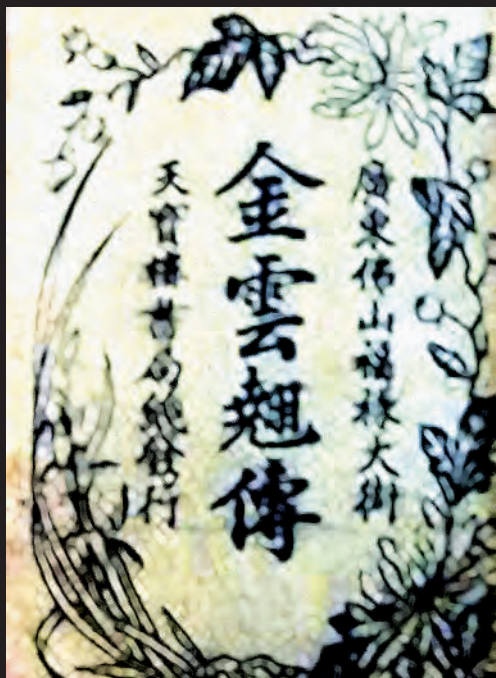 廣東佛山福祿大街
金雲翹傳
天寶樓書局發行